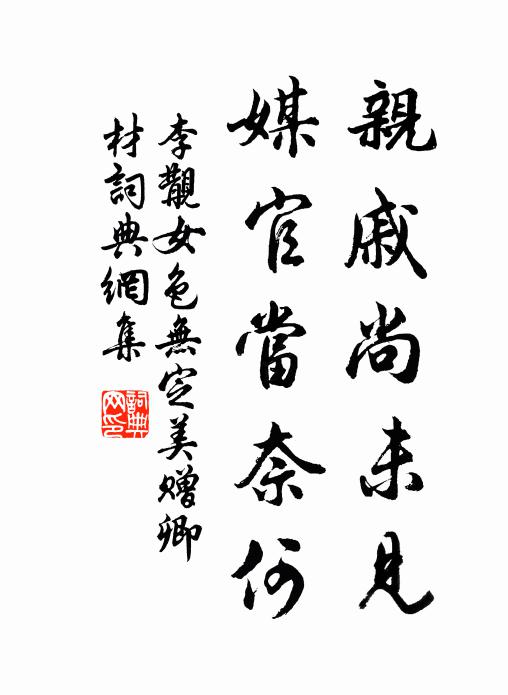 親戚尚未見
媒官當奈何
李覯女色無定美贈卿
材詞典網集
詞典
网印